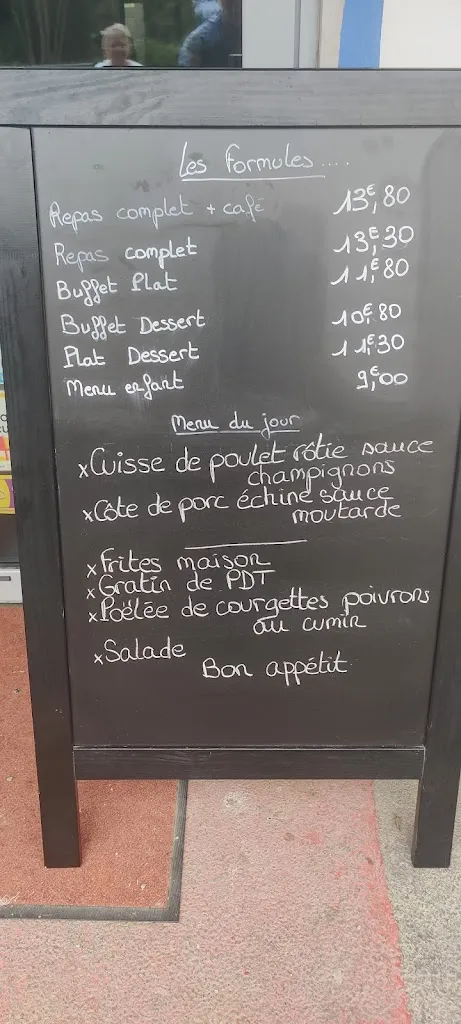 Les Formules....
Repas complet + café 13€,80
Repas complet 13€,30
Buffet Plat 11€,80
Buffet Dessert 10€,80
Plat Dessert 11€,30
Menu enfant 9€,00
Menu du jour
x Cuisse de poulet rôtie sauce
champignons
x Côte de porc échine sauce
moutarde
x Frites maison
x Gratin de PDT
x Poëlée de courgettes poivrons
au cumin
x Salade
Bon appétit